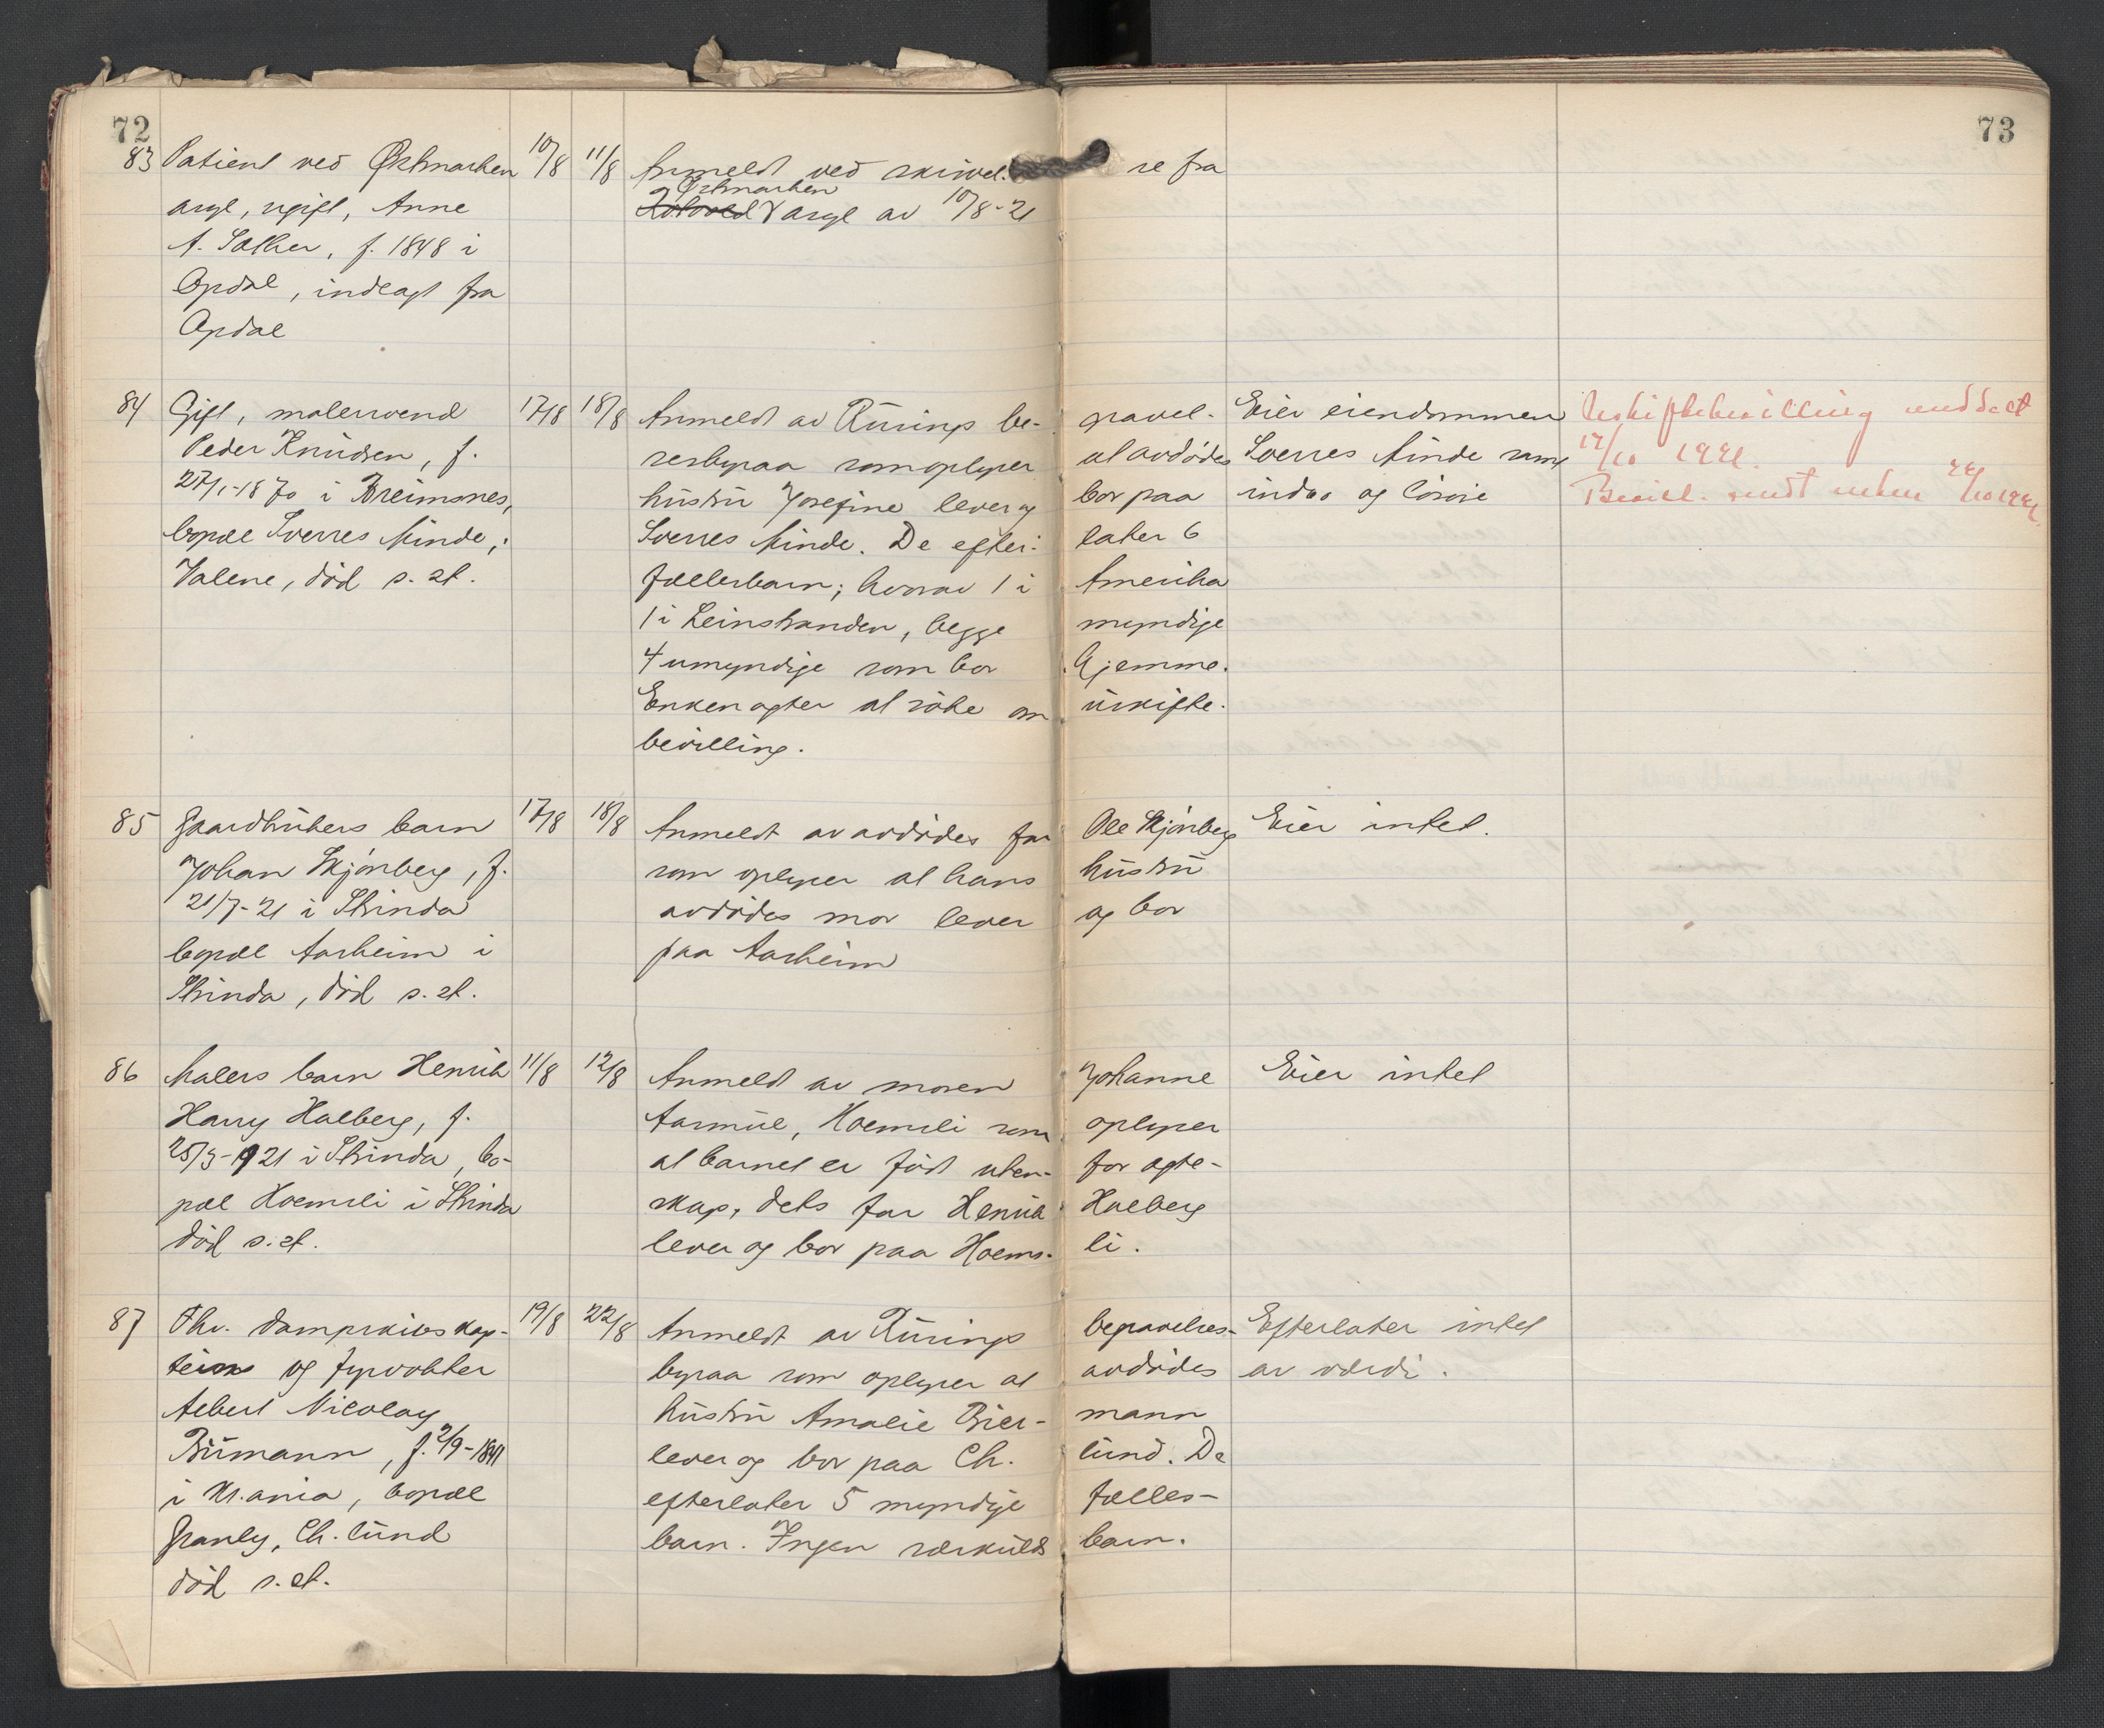 72
73
83 Patient ved Østmarken 10/8 11/8 Anmeldt ved skrivel- se fra
asyl, ugift, Anne Rotvold Østmarken asyl av 10/8-21
A. Sæther, f. 1848 i
Opdal, indlagt fra
Opdal
84 Gift, malersvend 17/8 18/8 Anmeldt av Rürings be- gravel- Eier eiendommen Uskiftebevilling meddelt
Peder Knudsen, f. sesbyraa som oplyser at avdødes Sverres Minde samt 17/10 1921.
27/1-1870 i Breimsnes, hustru Josefine lever og bor paa indbo og løsøre Bevill. sendt enken 24/10 1921.
bopæl Sverres Minde, Sverres Minde. De efter- later 6
Valene, død s.st. fællesbarn; hvorav 1 i Amerika
1 i Leinstranden, begge myndige
4 umyndige som bor hjemme.
Enken agter at søke om uskifte-
bevilling.
85 Gaardbrukers barn 17/8 18/8 Anmeldt av avdødes far Ole Skjønberg Eier intet.
Johan Skjønberg, f. som oplyser at hans hustru
21/7-21 i Strinda avdødes mor lever og bor
bopæl Aarheim i paa Aarheim
Strinda, død s.st.
86 Malers barn Henrik 11/8 12/8 Anmeldt av moren Johanne Eier intet
Harry Holberg, f. Aarmul, Hoemsli som oplyser
25/3-1921 i Strinda, bo- at barnet er født uten- for egte-
pæl Hoemsli i Strinda skap, dets far Henrik Holberg
død s.st. lever og bor paa Hoems- li.
87 Fhv. dampskibskap- 19/8 22/8 Anmeldt av Rürings begravelses- Efterlater intet
tein og fyrvokter byraa som oplyser at avdødes av værdi.
Albert Nicolay hustru Amalie Bier- mann
Biirmann, f. 2/9-1841 lever og bor paa Ch. lund. De
i Kr.ania, bopæl efterlater 5 myndige fælles-
Granly, Ch. lund barn. Ingen særkulds barn.
død s.st.